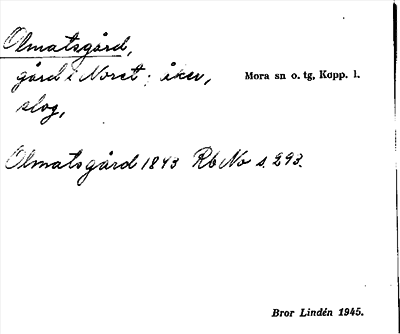 Olmatsgård,
gård i Noret; åker, Mora sn o. tg, Kopp. l.
slog,
Olmatsgård 1843 Rb No s. 293.
Bror Lindén 1945.